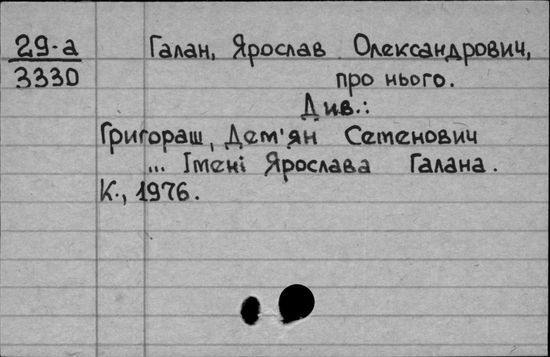 29-а
3330
Галан, Ярослав Олександрович,
про нього.
Див.:
Григораш, Дем'ян Семенович
... Імені Ярослава Галана.
К., 1976.